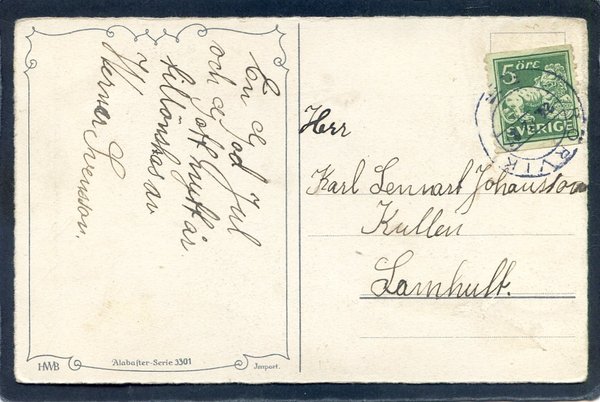 En de
god Jul
och de
gott nytt år
tillönskas av
Werner Svensson.
HWB
Alabaster-Serie 3301
Import.
5 ÖRE
SVERIGE
Herr
Karl Lennart Johansson
Kullen
Lamhult.